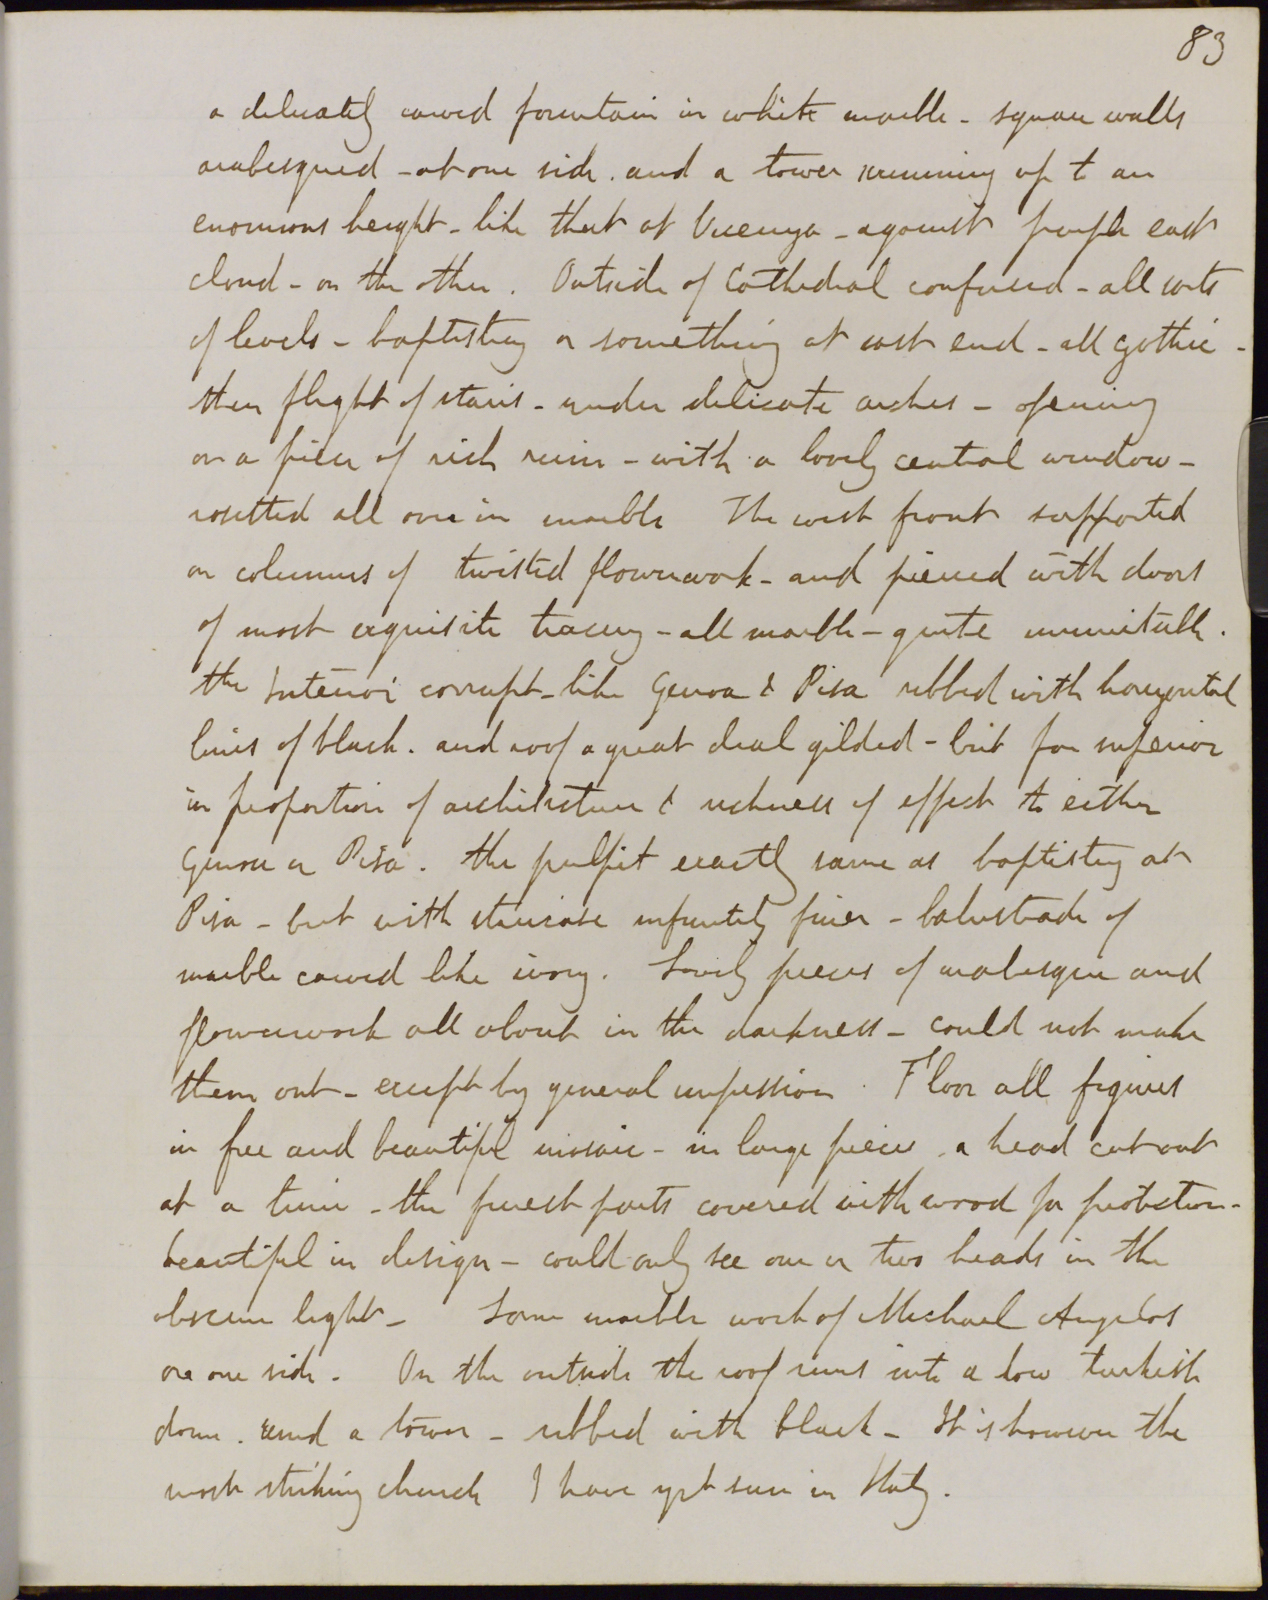 83
a delicately carved fountain in white marble - square walls
arabesqued - at one side. and a tower running up to an
enormous height - like that at Vicenza - against purple east
cloud - on the other. Outside of Cathedral confused - all sorts
of levels - baptistry or something at east end - all gothic -
then flight of stairs - under delicate arches - opening
on a piece of rich ruin - with a lovely central window -
rosetted all over in marble The west front supported
on columns of twisted flowerwork - and pierced with doors
of most exquisite tracery - all marble - quite inimitable.
the Interior corrupt - like Genoa & Pisa ribbed with horizontal
lines of black. and roof a great deal gilded - but far inferior
in proportion of architecture & richness of effect to either
Genoa or Pisa. the pulpit exactly same as baptistry at
Pisa - but with staircase infinitely finer - balustrade of
marble carved like ivory. Lovely pieces of arabesque and
flowerwork all about in the darkness - could not make
them out - except by general impression. Floor all figures
in free and beautiful mosaic - in large pieces, a head cut out
at a time - the finest parts covered with wood for protection -
beautiful in design - could only see one or two heads in the
obscure light - Some marble work of Michael Angelos
on one side. On the outside the roof runs into a low turkish
dome. and a tower - ribbed with black - It is however the
most striking church I have yet seen in Italy.